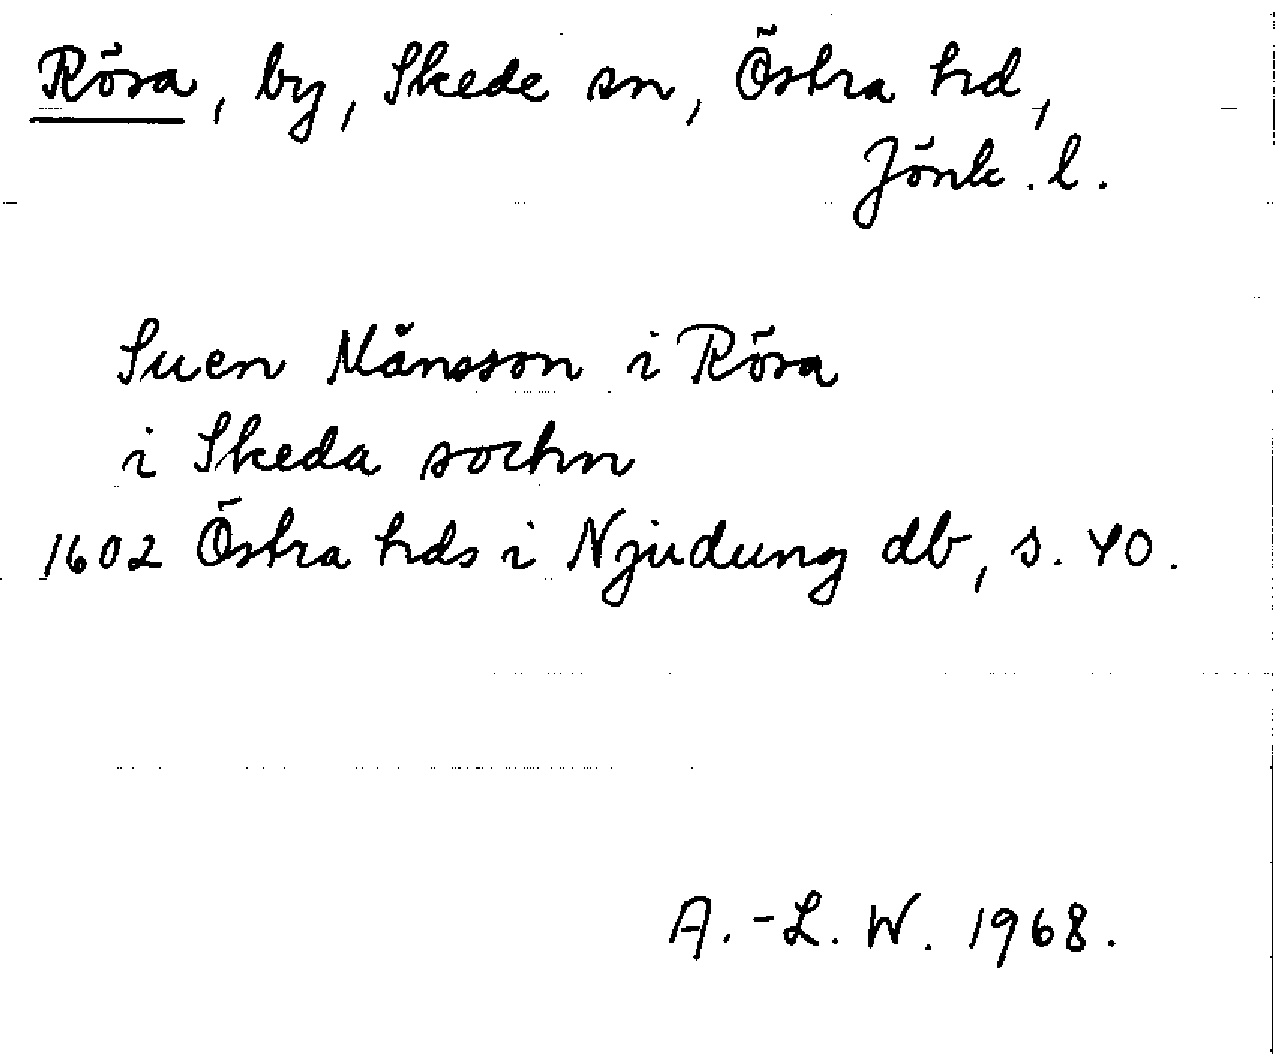 Rösa, by, Skede sn, Östra hd,
Jönk. l.
Suen Månsson i Rösa
i Skeda sochn
1602 Östra hds i Njudung db, s. 40.
A.-L. W. 1968.